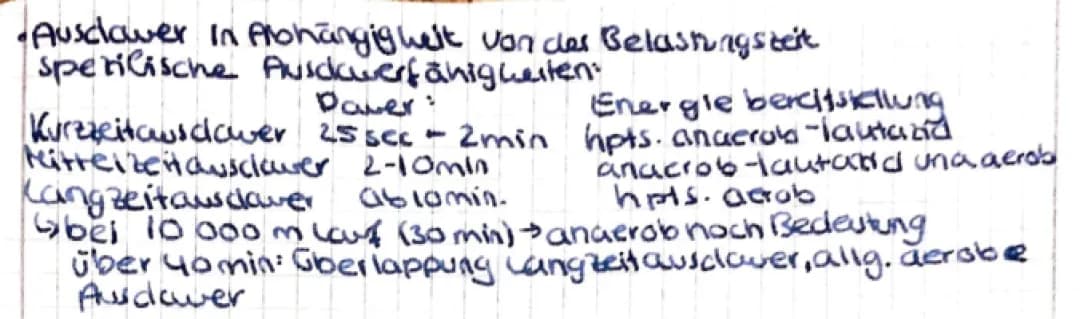 • Ausdauer in Abhängigkeit von der Belastungszeit
spezifische Ausdauerfähigkeiten:
Dauer: Energiebereitstellung
Kurzzeitausdauer 25 sec - 2min hpts. anaerob-laktazid
Mittelzeitausdauer 2-10min anaerob-laktazid und aerob
Langzeitausdauer ab 10min. hpts. aerob
↳ bei 10 000 m Lauf (30 min) → anaerob noch Bedeutung
über 40min: Überlappung Langzeitausdauer, allg. aerobe
Ausdauer